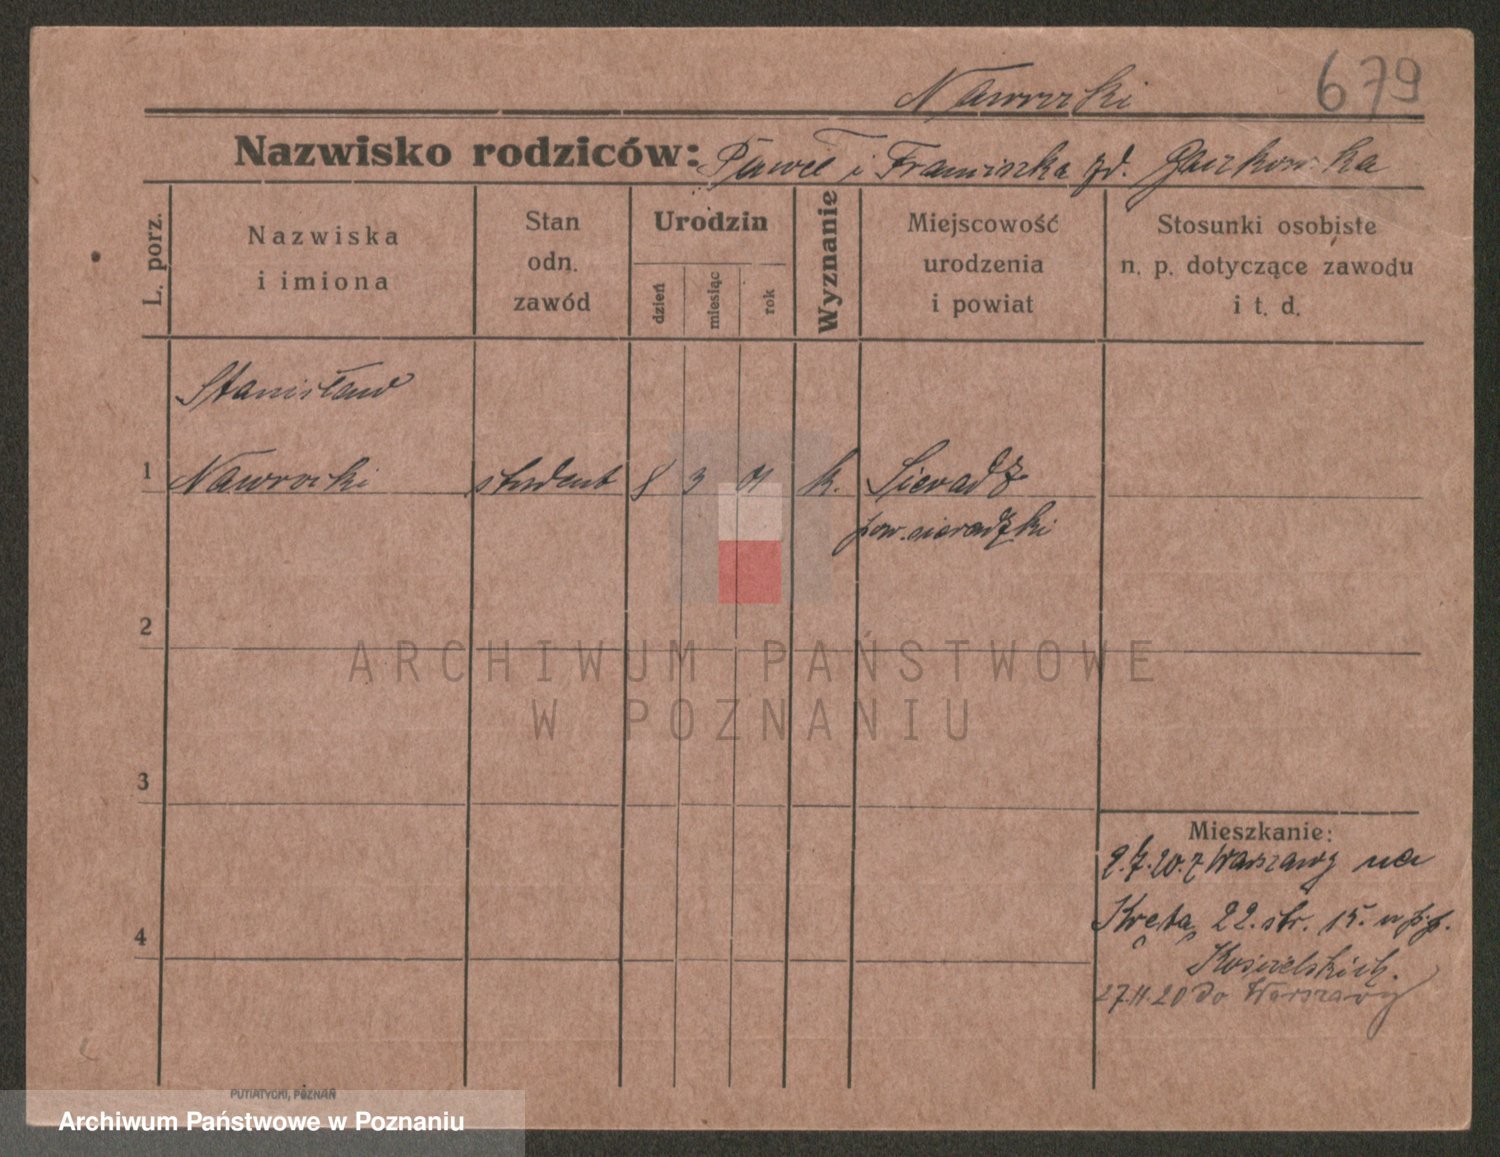 Nawrocki 679
Nazwisko rodziców: Paweł i Franciszka zd.
L. porz.
Nazwiska
i imiona
Stan
odn.
zawód
Urodzin
dzień
miesiąc
rok
Wyznanie
Miejscowość
urodzenia
i powiat
Stosunki osobiste
n. p. dotyczące zawodu
i t. d.
Stanisław
1 Nawrocki student 8 3 k. Sieradz
pow. sieradzki
2
ARCHIWUM PAŃSTWOWE
W POZNANIU
3
Mieszkanie:
20. z Warszawy na
Kręta 22. str. 15. u p.p.
4
27.11.20 do Warszawy
PUTIATYCKI, POZNAŃ
Archiwum Państwowe w Poznaniu